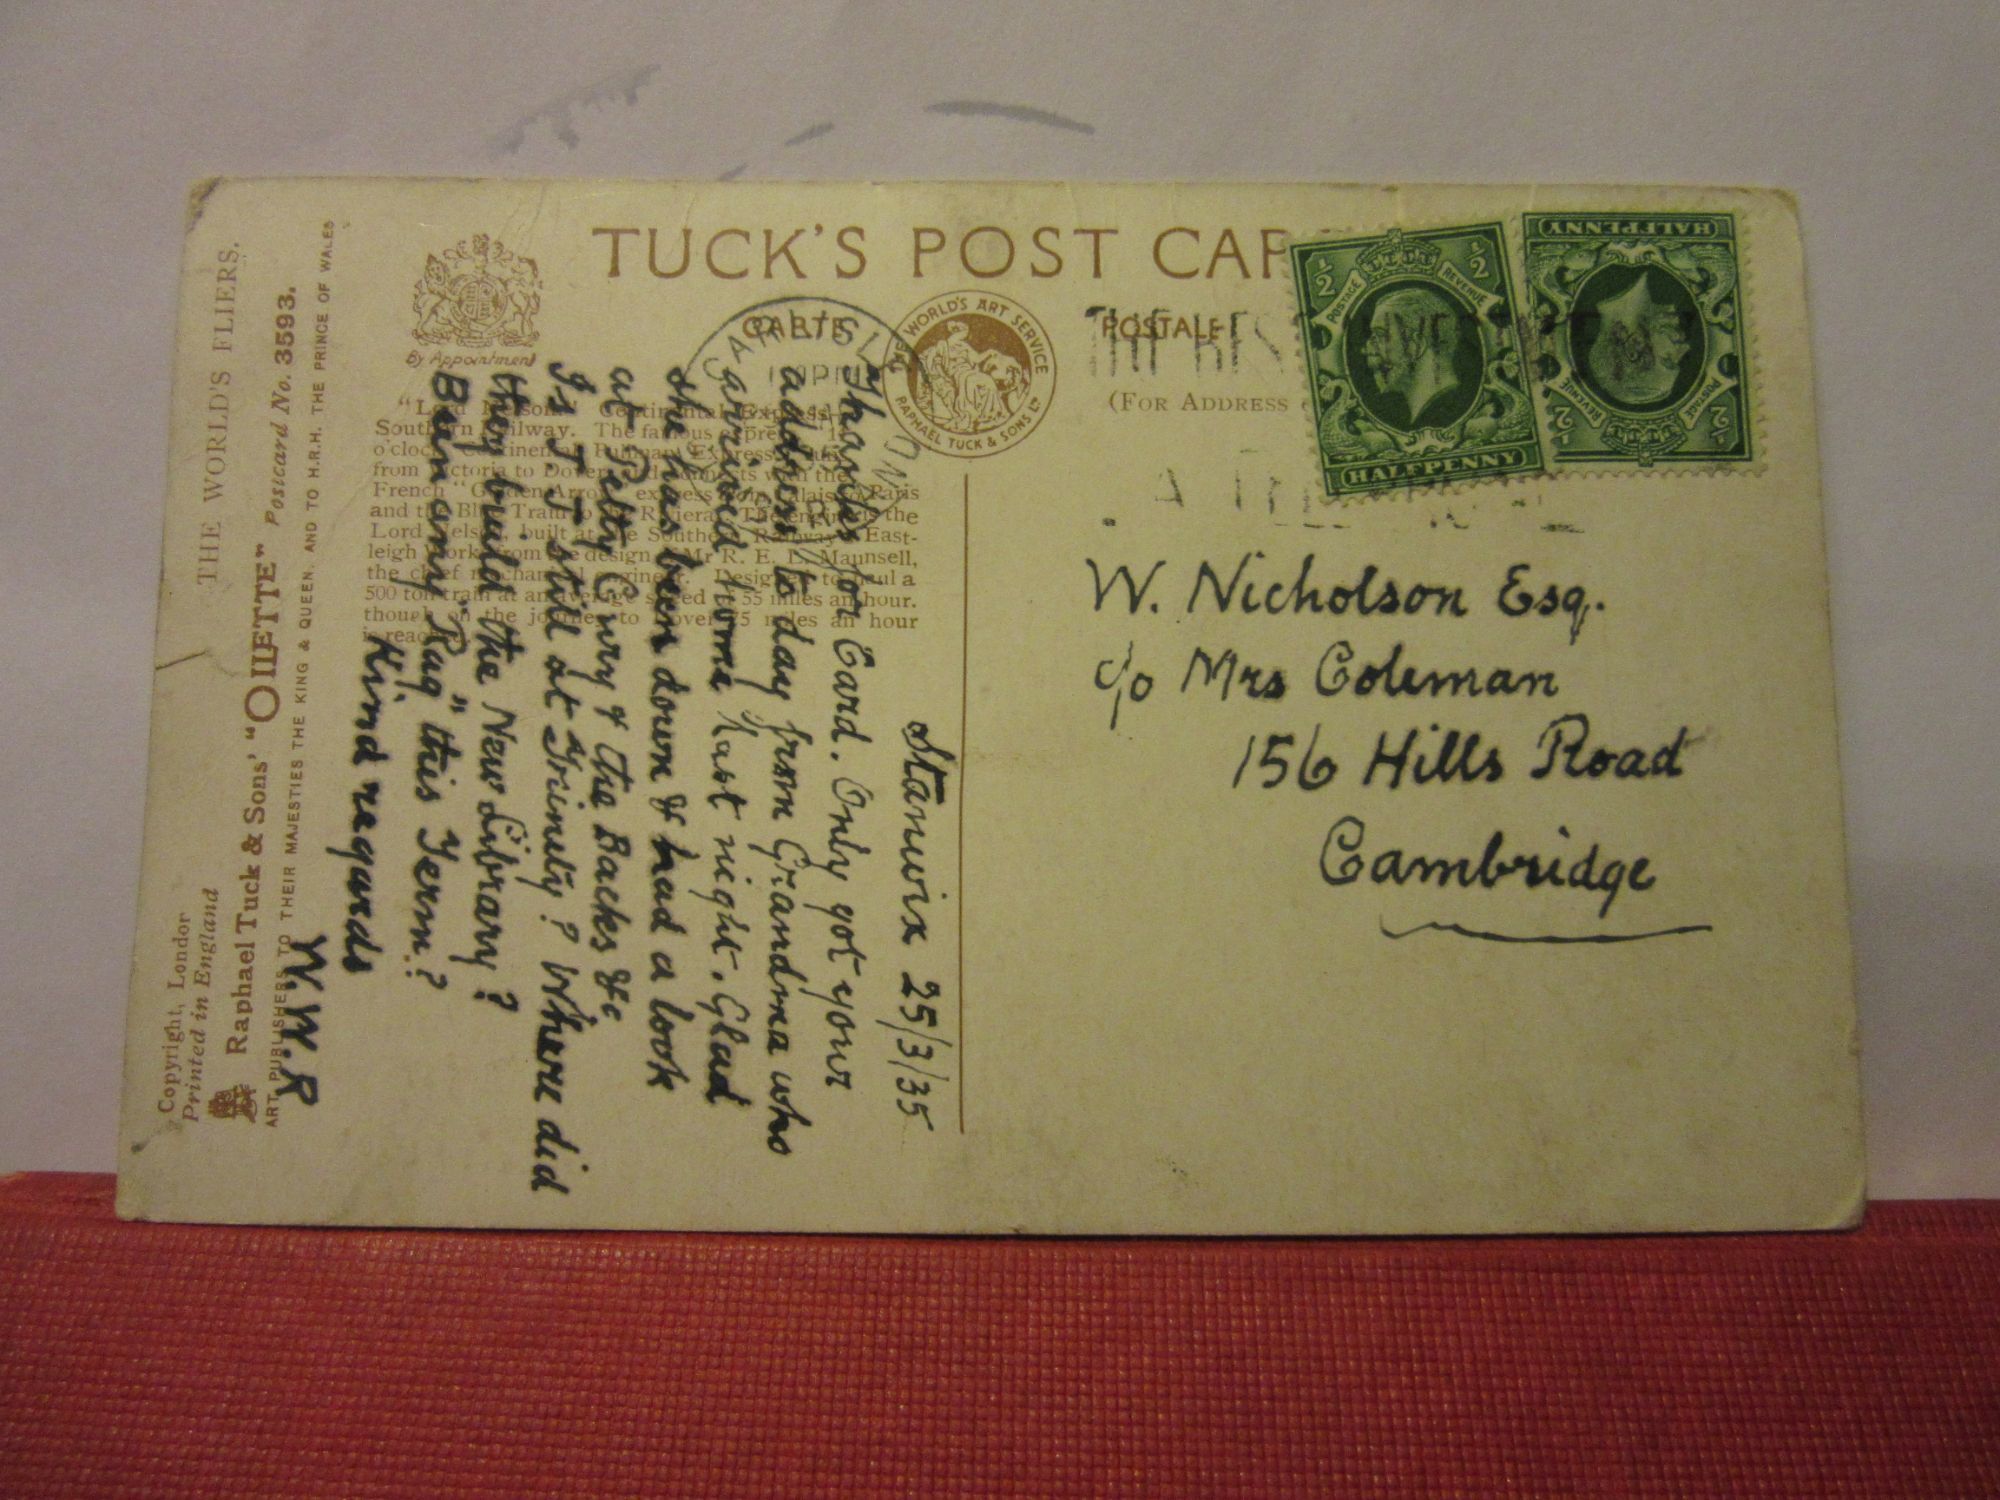 TUCK'S POST CAR
CARTE POSTALE
(FOR ADDRESS
By Appointment
THE WORLD'S ART SERVICE
RAPHAEL TUCK & SONS LTD
THE WORLD'S FLIERS.
Copyright, London
Printed in England
Raphael Tuck & Sons' "OILETTE" Postcard No. 3593.
ART PUBLISHERS TO THEIR MAJESTIES THE KING & QUEEN, AND TO H.R.H. THE PRINCE OF WALES
"Lord Nelson" Continental Express,
Southern Railway. The famous express "11
o'clock Continental Pullman Express" runs
from Victoria to Dover and connects with the
French "Golden Arrow" express from Calais to Paris
and the Blue Train to the Riviera. The engine is the
Lord Nelson, built at the Southern Railway's East-
leigh Works from the design of Mr R. E. L. Maunsell,
the chief mechanical engineer. Designed to haul a
500 ton train at an average speed of 55 miles an hour.
though on the journey to Dover 75 miles an hour
is reached.
Stanwix 25/3/35
Thanks for Card. Only got your
address to day from Grandma who
arrived home last night. Glad
she has been down & had a look
at Petty Cury & the Backs &c
Is J.J. still at Trinity? Where did
they build the New Library?
Been any "Rag" this Term?
Kind regards
W.W.R
CARLISLE
POSTAGE REVENUE
½ ½
HALFPENNY
POSTAGE REVENUE
½ ½
HALFPENNY
W. Nicholson Esq.
c/o Mrs Coleman
156 Hills Road
Cambridge